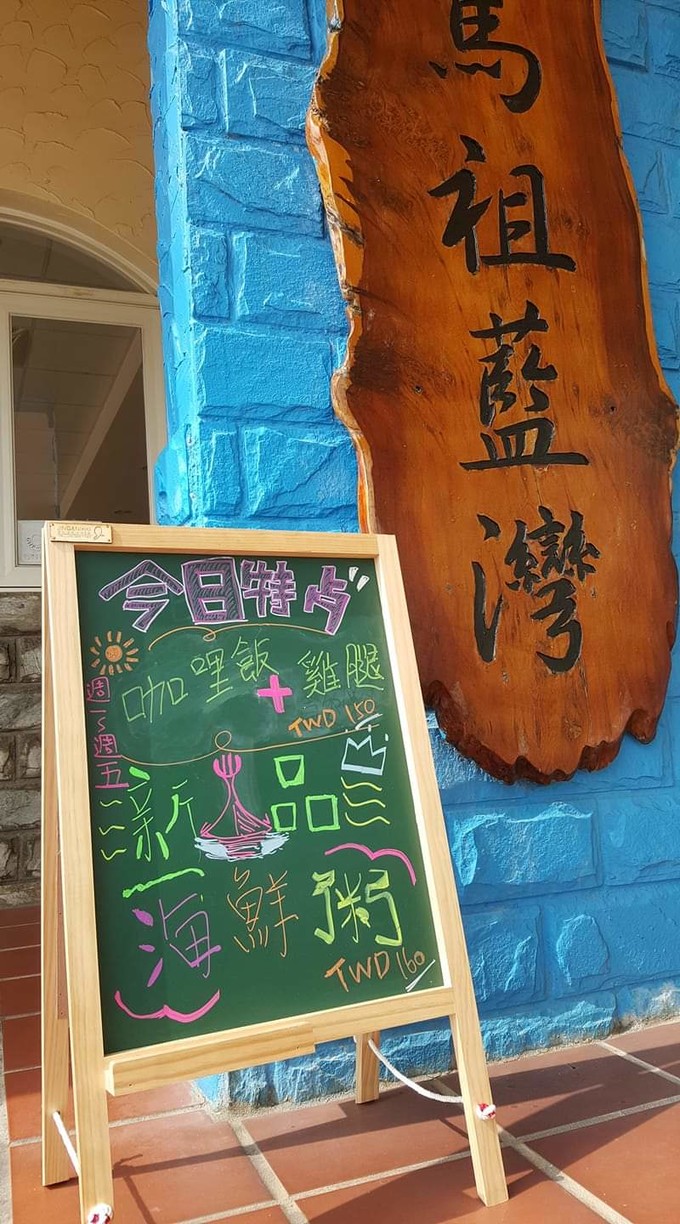 馬祖藍灣
今日特占
週一~週五
咖哩飯+雞腿
TWD 150
新品
海鮮粥
TWD 160